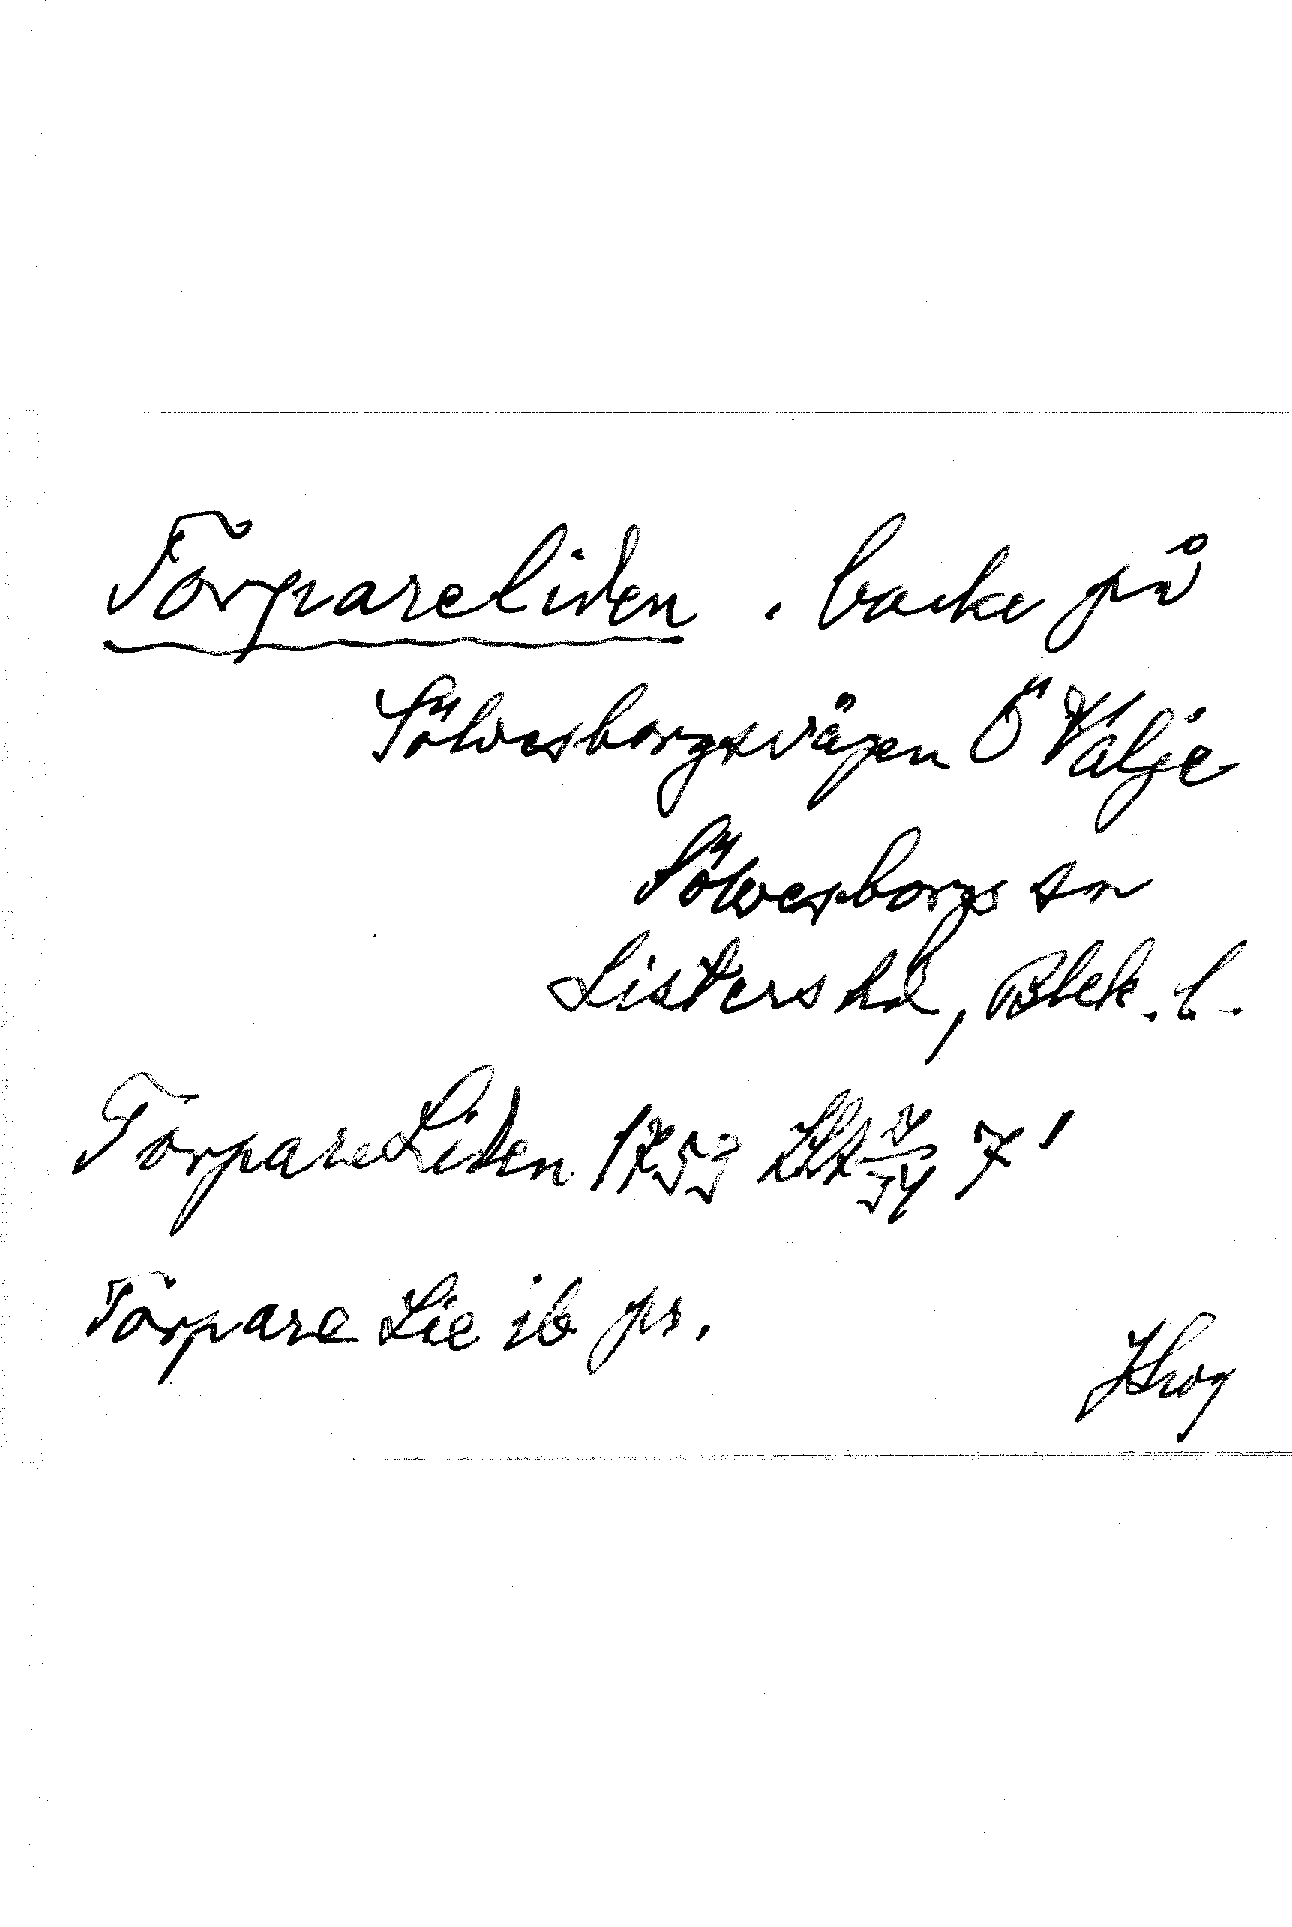 Torpareliden . backe på
Sölvesborgsvägen Ö Valje
Sölvesborgs sn
Listers hd, Blek. l.
TorpareLiden 1753 7'
Torpare Lie ib ps.